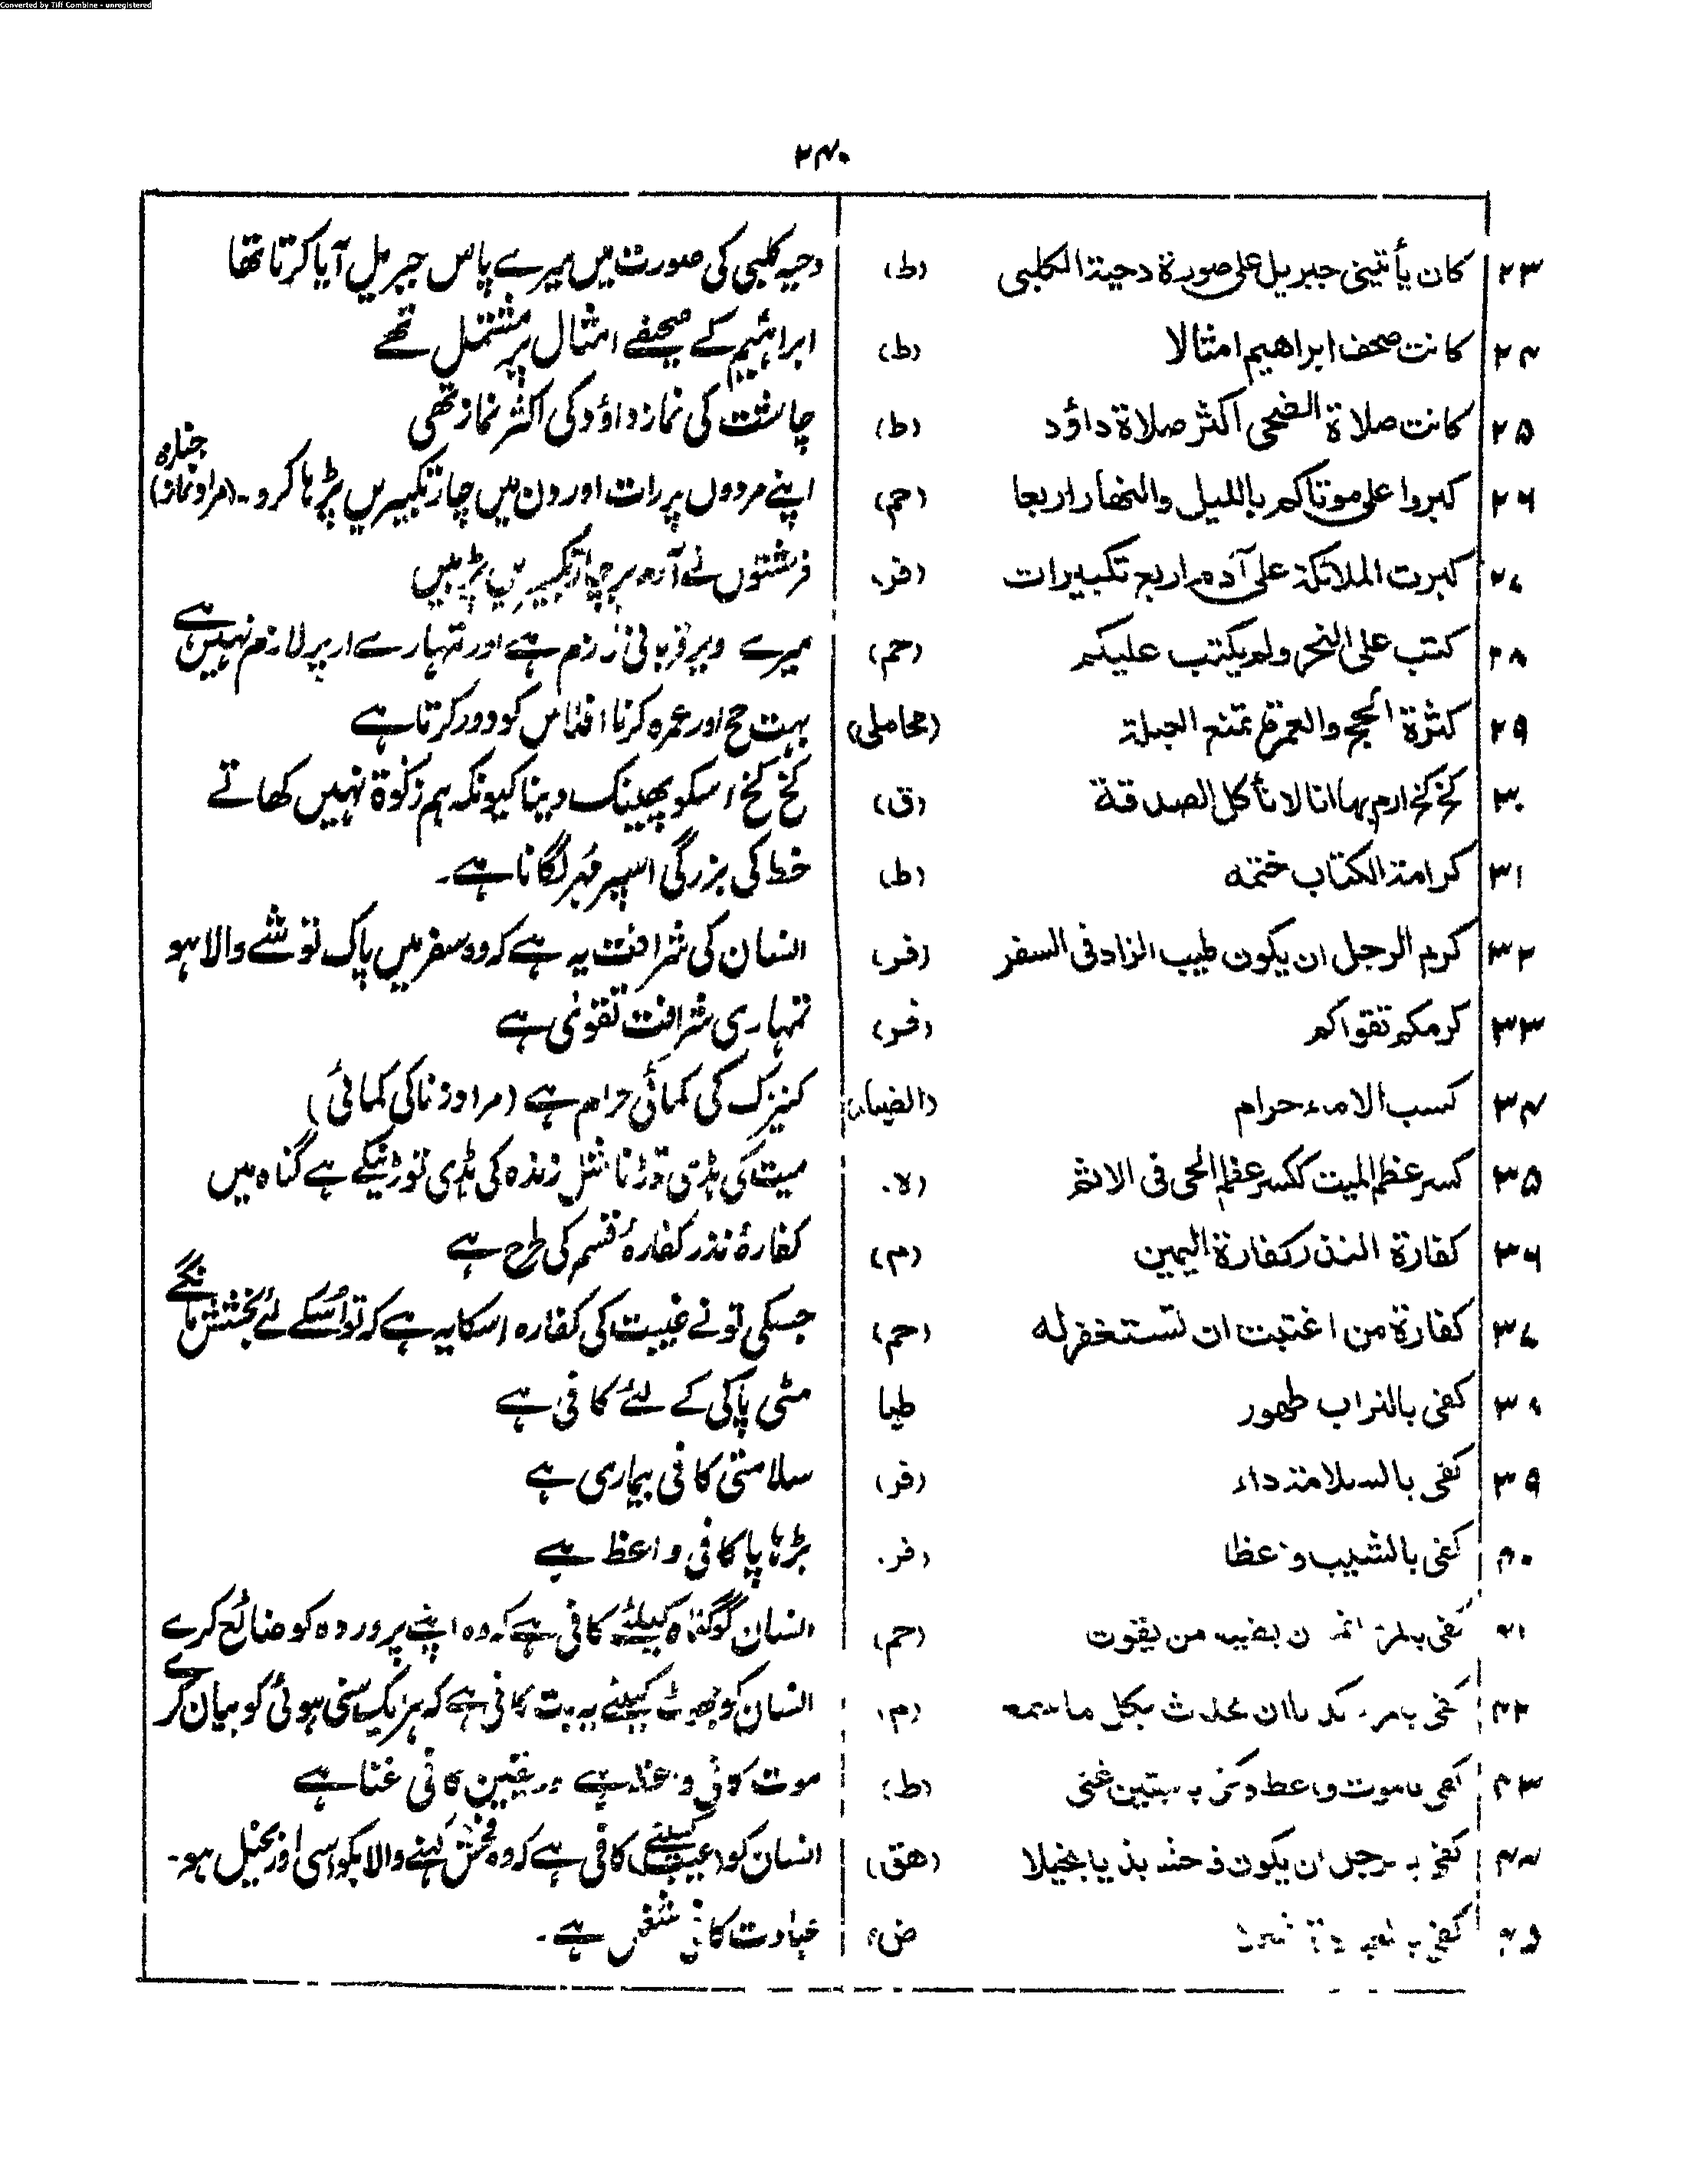 Converted by Tiff Combine - unregistered
۲۴۰
۲۳ کان یأتینی جبریل علی صورة دحیة الکلبی (ط) دحیہ کلبی کی صورت میں میرے پاس جبریل آیا کرتا تھا
۲۴ کانت صحف ابراهیم امثالا (ط) ابراہیم کے صحیفے امثال پر مشتمل تھے
۲۵ کانت صلاة الضحی اکثر صلاة داؤد (ط) چاشت کی نماز داؤد کی اکثر نماز تھی
۲۶ کبروا علی موتاکم باللیل والنهار اربعا (حم) اپنے مردوں پر رات اور دن میں چار تکبیریں پڑہا کرو۔ (مراد نماز جنازہ)
۲۷ کبرت الملائکة علی آدم اربع تکبیرات (فر) فرشتوں نے آدم پر چار تکبیریں پڑہیں
۲۸ کتب علی النحر ولم یکتب علیکم (حم) میرے وپر قربانی لازم ہے اور تمہارے اوپر لازم نہیں ہے
۲۹ کثرة الحج والعمرة تمنع العیلة (محاملی) بہت حج اور عمرہ کرنا افلاس کو دور کرتا ہے
۳۰ کخ کخ ارم بها انا لا نأکل الصدقة (ق) کخ کخ اسکو پھینک دینا کیونکہ ہم زکوٰة نہیں کھاتے
۳۱ کرامة الکتاب ختمه (ط) خط کی بزرگی اسپر مُہر لگانا ہے۔
۳۲ کرم الرجل ان یکون طیب الزاد فی السفر (فر) انسان کی شرافت یہ ہے کہ وہ سفر میں پاک توشے والا ہو
۳۳ کرمکم تقواکم (فر) تمہاری شرافت تقویٰ ہے
۳۴ کسب الاماء حرام (الضیاء) کنیزک کی کمائی حرام ہے (مراد زنا کی کمائی)
۳۵ کسر عظم المیت ککسر عظم الحی فی الاثم (ہ) میت کی ہڈی توڑنا مثل زندہ کی ہڈی توڑنیکے ہے گناہ میں
۳۶ کفارة النذر کفارة الیمین (م) کفارۂ نذر کفارۂ قسم کی طرح ہے
۳۷ کفارة من اغتبت ان تستغفر له (حم) جسکی تو نے غیبت کی کفارہ اسکا یہ ہے کہ تو اُسکے لئے بخشش مانگے
۳۸ کفی بالتراب طهور طیا مٹی پاکی کے لئے کافی ہے
۳۹ کفی بالسلامة داء (فر) سلامتی کافی بیماری ہے
۴۰ کفی بالشیب واعظا (فر) بڑہاپا کافی واعظ ہے
۴۱ کفی بالمرء اثما ن یضیع من یقوت (حم) انسان کو گناہ کیلئے کافی ہے کہ وہ اپنے پروردہ کو ضائع کرے
۴۲ کفی بالمرء کذبا ان یحدث بکل ما سمع (م) انسان کو جھوٹ کیلئے یہ بت کافی ہے کہ ہر یک سنی ہوئی کو بیان کرے
۴۳ کفی بالموت واعظا وکفی بالیقین غنی (ط) موت کافی واعظ ہے ور یقین کافی غنا ہے
۴۴ کفی بالرجل ان یکون فاحشا بذیا بخیلا (هق) انسان کو عیب کیلئے کافی ہے کہ وہ فحش کہنے والا بکواسی اور بخیل ہو۔
۴۵ کفی بالعبادة شغلا ض عبادت کافی شغل ہے۔